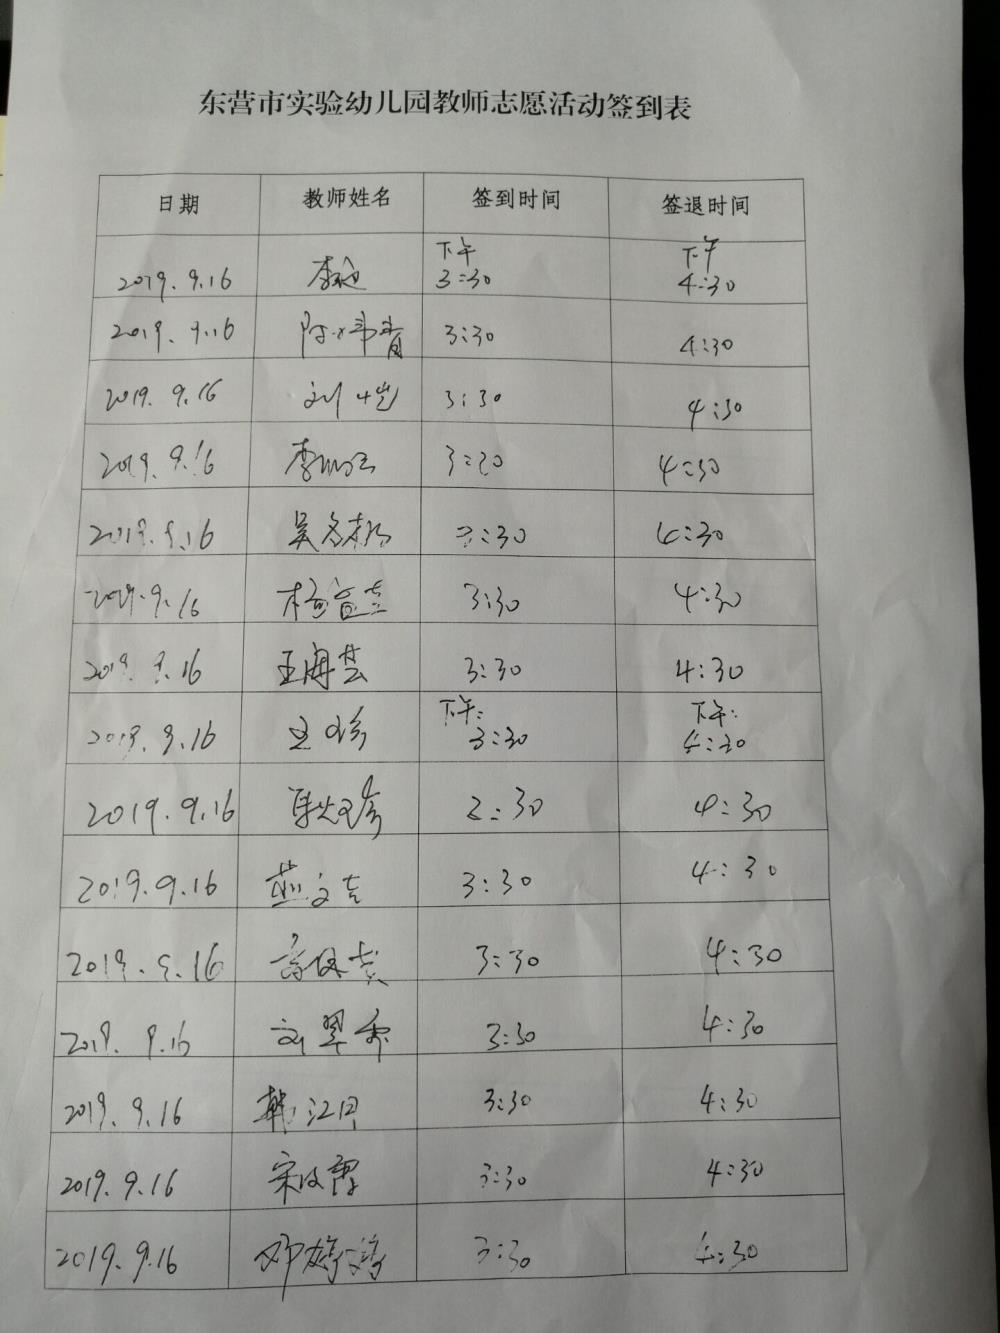 东营市实验幼儿园教师志愿活动签到表
日期 教师姓名 签到时间 签退时间
2019.9.16 李 下午 3:30 下午 4:30
2019.9.16 陈炜青 3:30 4:30
2019.9.16 刘恺 3:30 4:30
2019.9.16 李 3:30 4:30
2019.9.16 吴 3:30 4:30
2019.9.16 杨 3:30 4:30
2019.9.16 王海芸 3:30 4:30
2019.9.16 王珍 下午: 3:30 下午: 4:30
2019.9.16 2:30 4:30
2019.9.16 燕文吉 3:30 4:30
2019.9.16 3:30 4:30
2019.9.16 刘翠香 3:30 4:30
2019.9.16 韩江月 3:30 4:30
2019.9.16 宋 霞 3:30 4:30
2019.9.16 邓婷婷 3:30 4:30